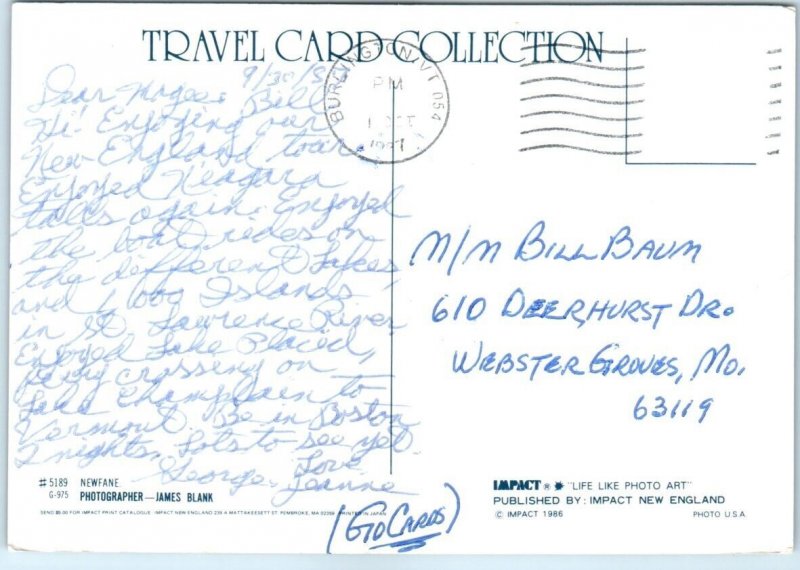 TRAVEL CARD COLLECTION
BURLINGTON, VT 054
PM
1 OCT
1987
9/30/8
Dear Bill
Hi! Enjoying our
New England tour.
Enjoyed Niagara
Falls again. Enjoyed
the boat rides on
the different Lakes
and 1000 Islands
in St Lawrence River
Enjoyed Lake Placid,
ferry crossing on
Lake Champlain to
Vermont. Be in Boston
2 nights. Lots to see yet.
Love
George Jeanne
M/M BILL BAUM
610 DEERHURST DR.
WEBSTER GROVES, MO.
63119
#5189 NEWFANE
G-975 PHOTOGRAPHER—JAMES BLANK
SEND $5.00 FOR IMPACT PRINT CATALOGUE. IMPACT NEW ENGLAND 239 A MATTAKEESETT ST. PEMBROKE, MA 02359 PRINTED IN JAPAN
(GTO CARDS)
IMPACT® "LIFE LIKE PHOTO ART"
PUBLISHED BY: IMPACT NEW ENGLAND
© IMPACT 1986 PHOTO U.S.A